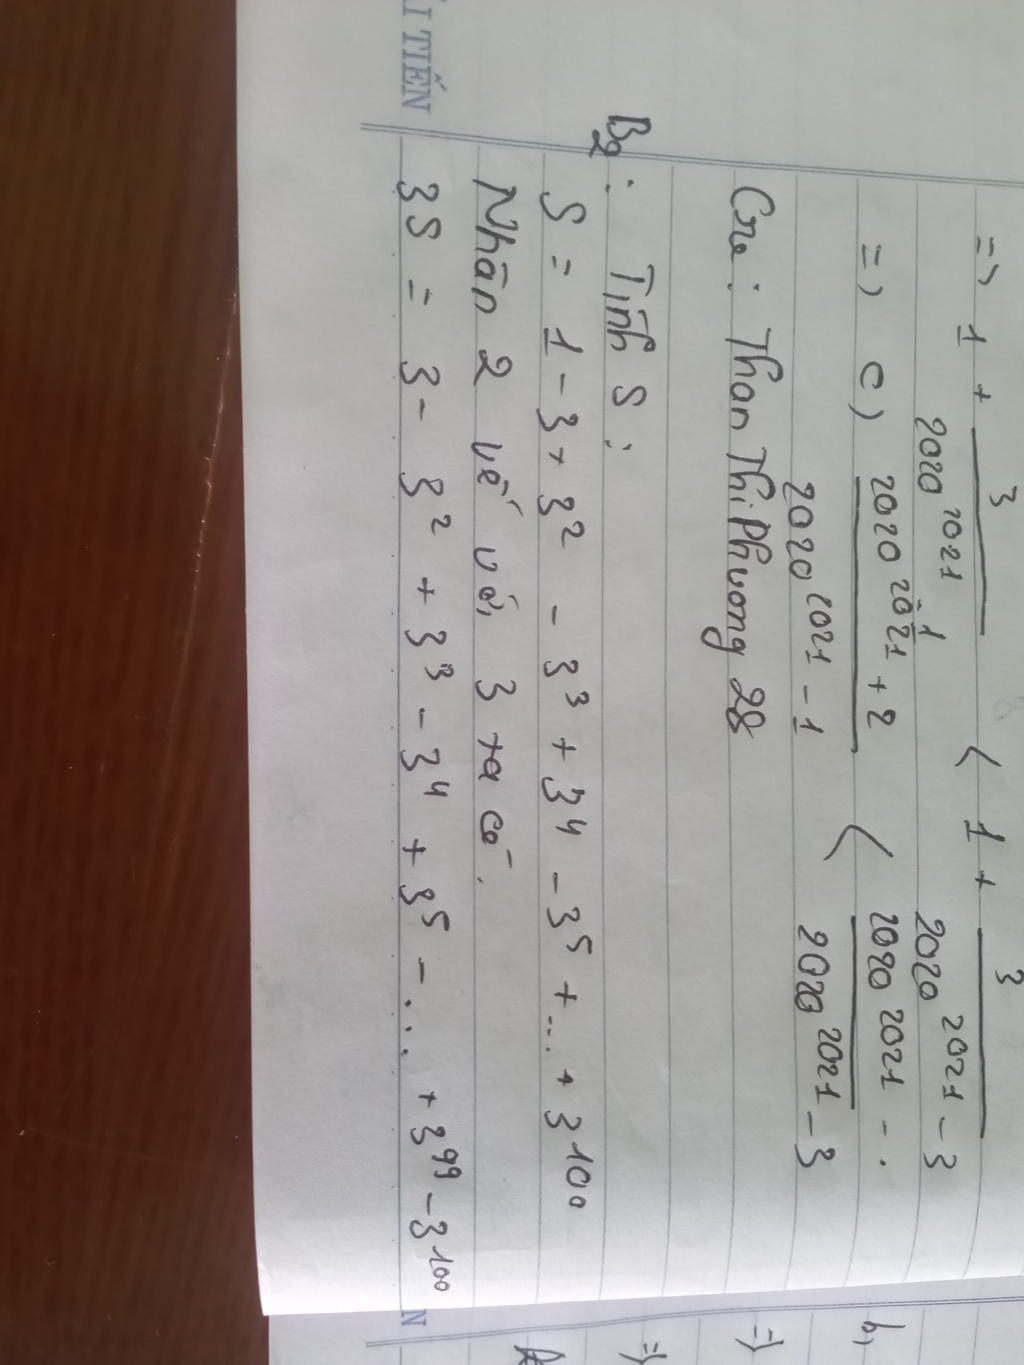 => 1 + 3 < 1 + 3
2020²⁰²¹ - 1 2020²⁰²¹ - 3
=> c) 2020²⁰²¹ + 2 < 2020²⁰²¹ - .
2020²⁰²¹ - 1 2020²⁰²¹ - 3
Cre : Than Thi Phuong 28
B2 : Tính S :
S = 1 - 3 + 3² - 3³ + 3⁴ - 3⁵ + ... + 3¹⁰⁰
Nhân 2 vế với 3 ta có.
3S = 3 - 3² + 3³ - 3⁴ + 3⁵ - ... + 3⁹⁹ - 3¹⁰⁰
ẢI TIẾN
N
b,
=>
=>